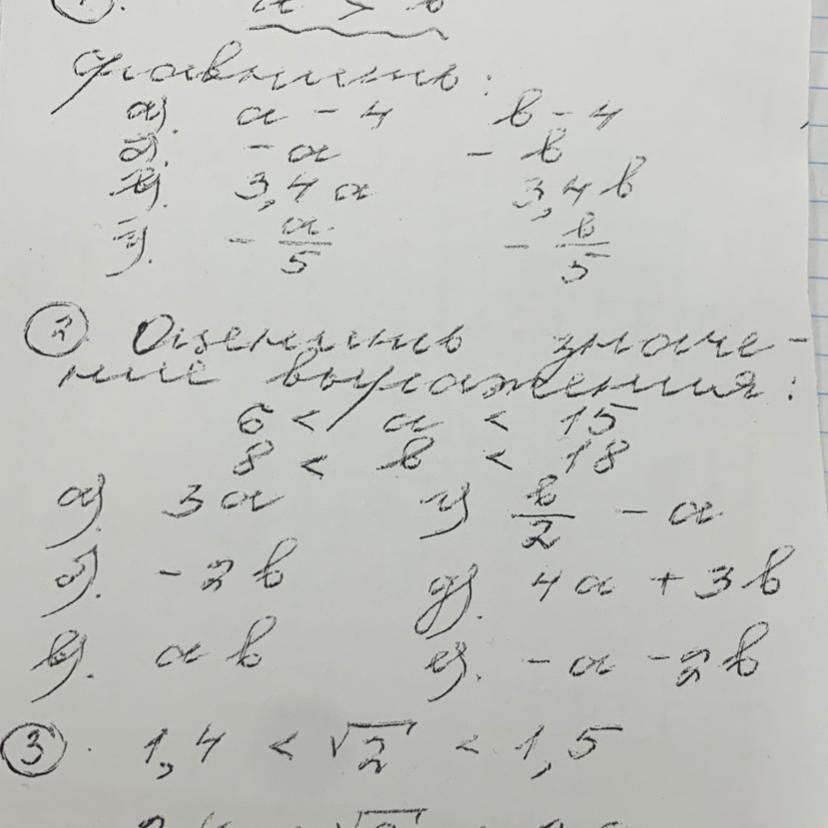 a > b
сравнить:
а). a - 4 b - 4
б). - a - b
в). 3,4 a 3,4 b
г). - a/5 - b/5
2 Оценить значе-
ние выражения:
6 < a < 15
8 < b < 18
а). 3a г) b/2 - a
б). - 2 b д). 4a + 3b
в). a b е). - a - 2b
3. 1,4 < √2 < 1,5